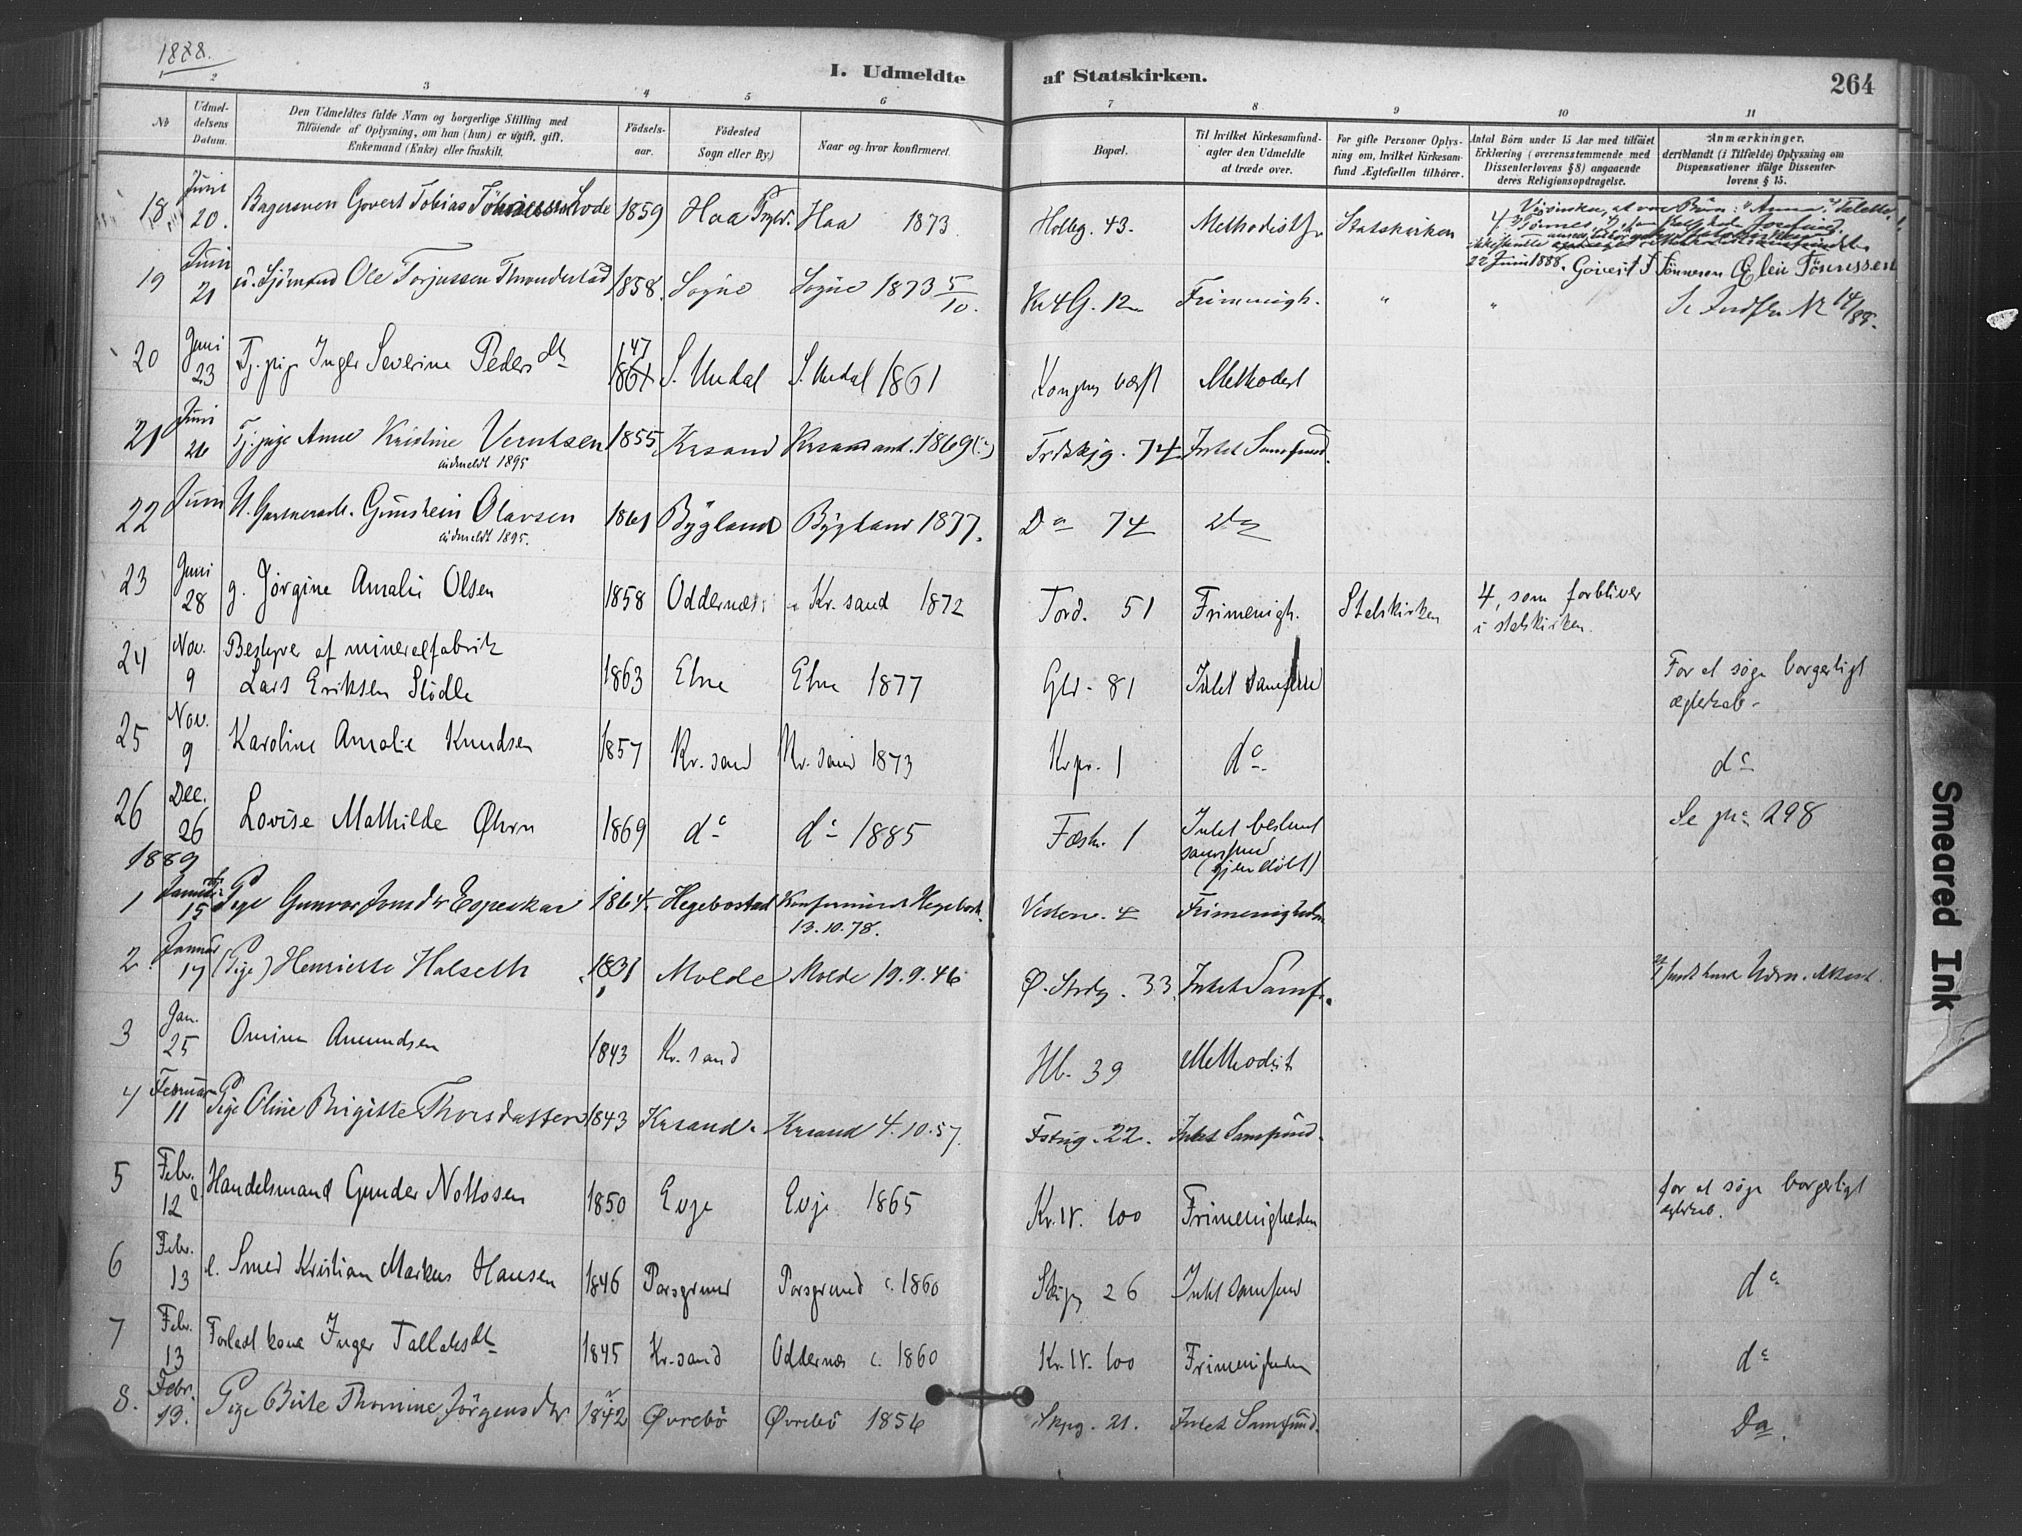 1888.
I. Udmeldte af Statskirken.
264
1 2 3 4 5 6 7 8 9 10 11
No
Udmel-
delsens
Datum.
Den Udmeldtes fulde Navn og borgerlige Stilling med
Tilføiende af Oplysning, om han (hun) er ugift, gift,
Enkemand (Enke) eller fraskilt.
Fødsels-
aar.
Fødested
Sogn eller By)
Naar og hvor konfirmeret.
Bopæl.
Til hvilket Kirkesamfund-
agter den Udmeldte
at træde over.
For gifte Personer Oplys-
ning om, hvilket Kirkesam-
fund Ægtefællen tilhører.
Antal Børn under 15 Aar med tilføiet
Erklæring (overensstemmende med
Dissenterlovens § 8) angaaende
deres Religionsopdragelse.
Anmærkninger,
deriblandt (i Tilfælde) Oplysning om
Dispensationer ifølge Dissenter-
lovens § 15.
18 Juni 20. Bagersven Govert Tobias 1859 Haa Haa 1873 Holbg. 43. Methodistf. Statskirken 4
22 Juni 1888. Govert T Tönnesen Elen Tönnessen
19 Juni 21 u. Sjömand Ole Torjussen Throndestad 1858. Sogne Sogne 1873 5/10. Kr4G. 12 Frimenigh. " " Se Indf. Nr 14/88.
20 Juni 23 Tj. pige Inger Severine Pedersdt 1861 47 S. Undal S. Undal 1861 Kongens værft Methodist
21 Juni 26 Tj. pige Anne Kristine Verntsen 1855 Krsand Krsand ant. 1869(?) Frdskjg. 74 Intet Samfund.
indmeldt 1895
22 Juni U. Gunstein Olavsen 1861 Bÿgland Bÿgland 1877. Do 74 Do
indmeldt 1895.
23 Juni 28 g. Jørgine Amalie Olsen 1858 Oddernæs Kr.sand 1872 Tord. 51 Frimenigh. Statskirken 4, som forbliver
i statskirken.
24 Nov. 9 Bestyrer af mineralfabrik
Lars Eriksen Stødle 1863 Etne Etne 1877 Gld. 81 Intet samfund For at søge borgerligt
ægteskab.
25 Nov. 9 Karoline Amalie Knudsen 1857 Kr.sand Kr.sand 1873 Krpr. 1 do do
26 Dec. 26 Lovise Mathilde Øhrn 1869 do do 1885 Fæstn. 1 Intet bestemt
samfund
(gjendöbt) Se pag 298
1889
1 Januar 15 Pige Gunvor Jonsdtr Espeskar 1864. Hegebostad Konfirmeret Hegebost.
13.10.78. Vesterv. 4 Frimenigheden
2. Januar 17 (Pige) Henriette Halseth 1831 Molde Molde 19.9.46 Ø. Strdg. 33. Intet Samf.
3 Jan. 25 Omine Amundsen 1843 Kr.sand Hb. 39 Methodist
4 Februar 11 Pige Oline Birgitte Thorsdatter 1843 Krsand. Krsand 4.10.57. Fstng. 22. Intet Samfund.
5 Febr. 12 Handelsmand Gunder Nottosen 1850 Evje Evje 1865 Kr.IV. 100 Frimenigheden for at søge borgerligt
ægteskab.
6 Febr. 13 e. Smed Kristian Markus Hansen 1846 Porsgrund Porsgrund c. 1860 Skipg 26 Intet samfund do
7 Febr. 13 Forladt kone Inger Tallaksdt 1845 Kr.sand Oddernæs c. 1860 Kr.IV. 100 Frimenigheden do
8. Febr. 13. Pige Birte Thomine Jörgensdtr 1842 Øvrebö Øvrebö 1856 Skpg. 21. Intet Samfund. Do.
Smeared Ink